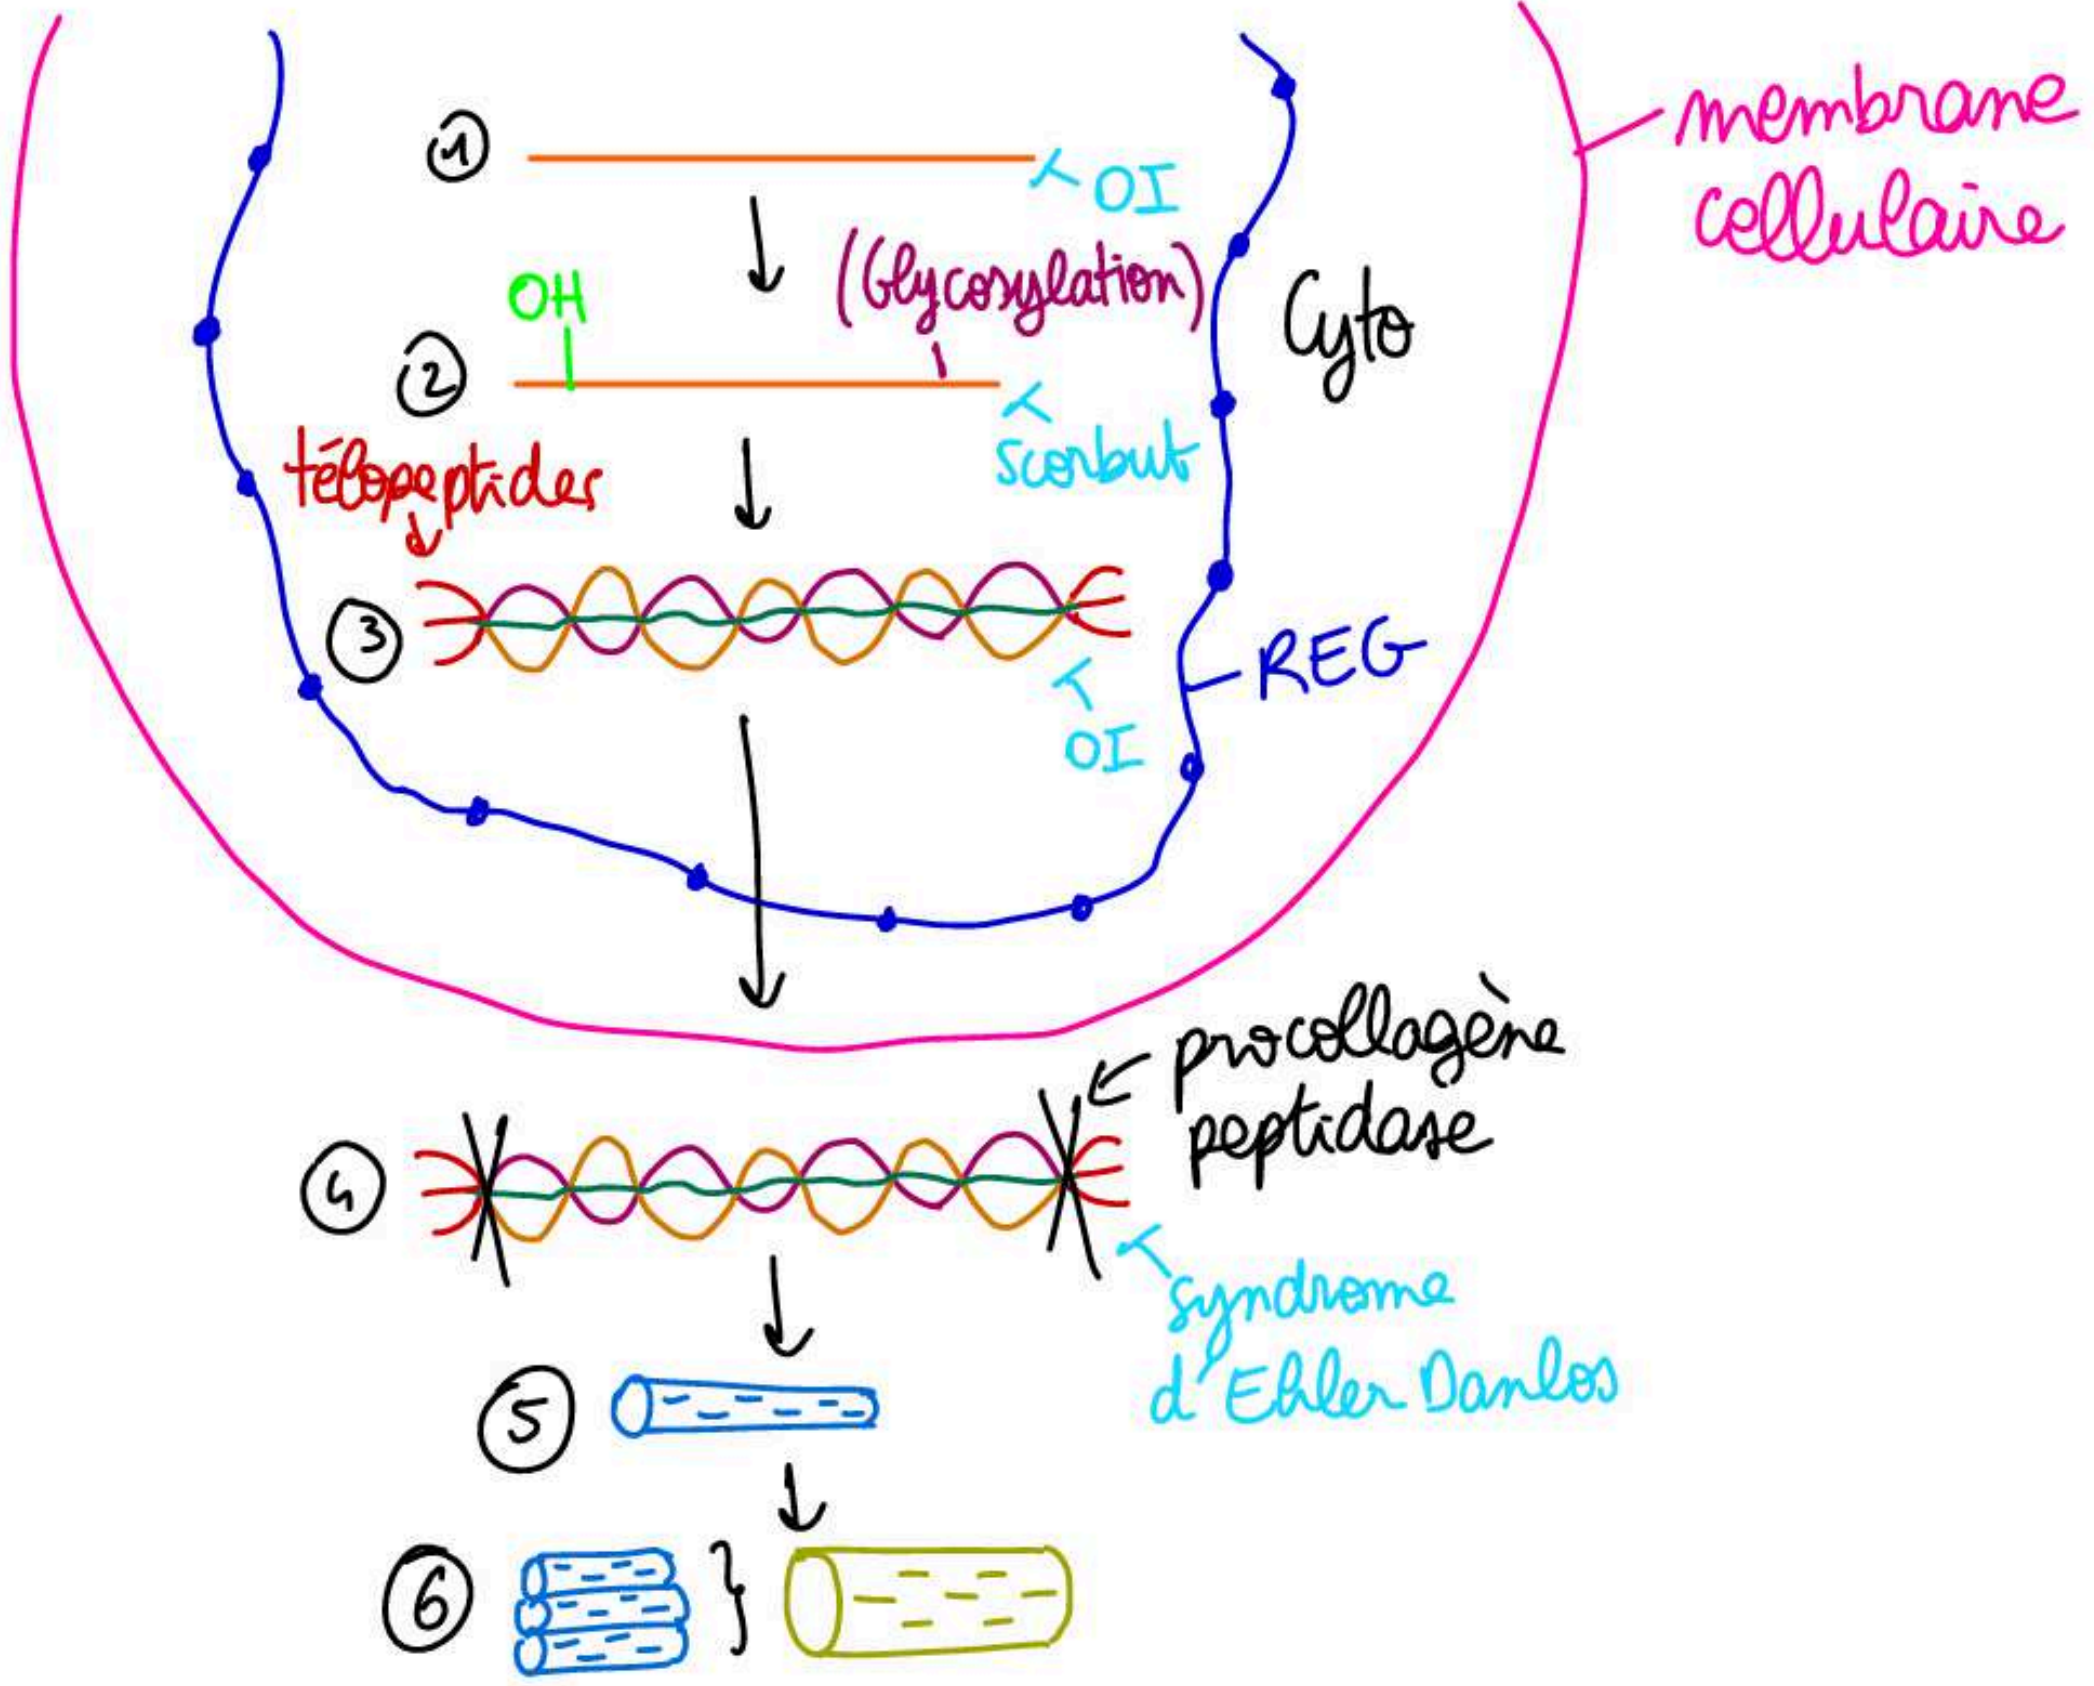 membrane
cellulaire
1
OI
(Glycosylation)
OH
Cyto
2
scorbut
télopeptides
3
REG
OI
procollagène
peptidase
4
syndrome
d'Ehler Danlos
5
6